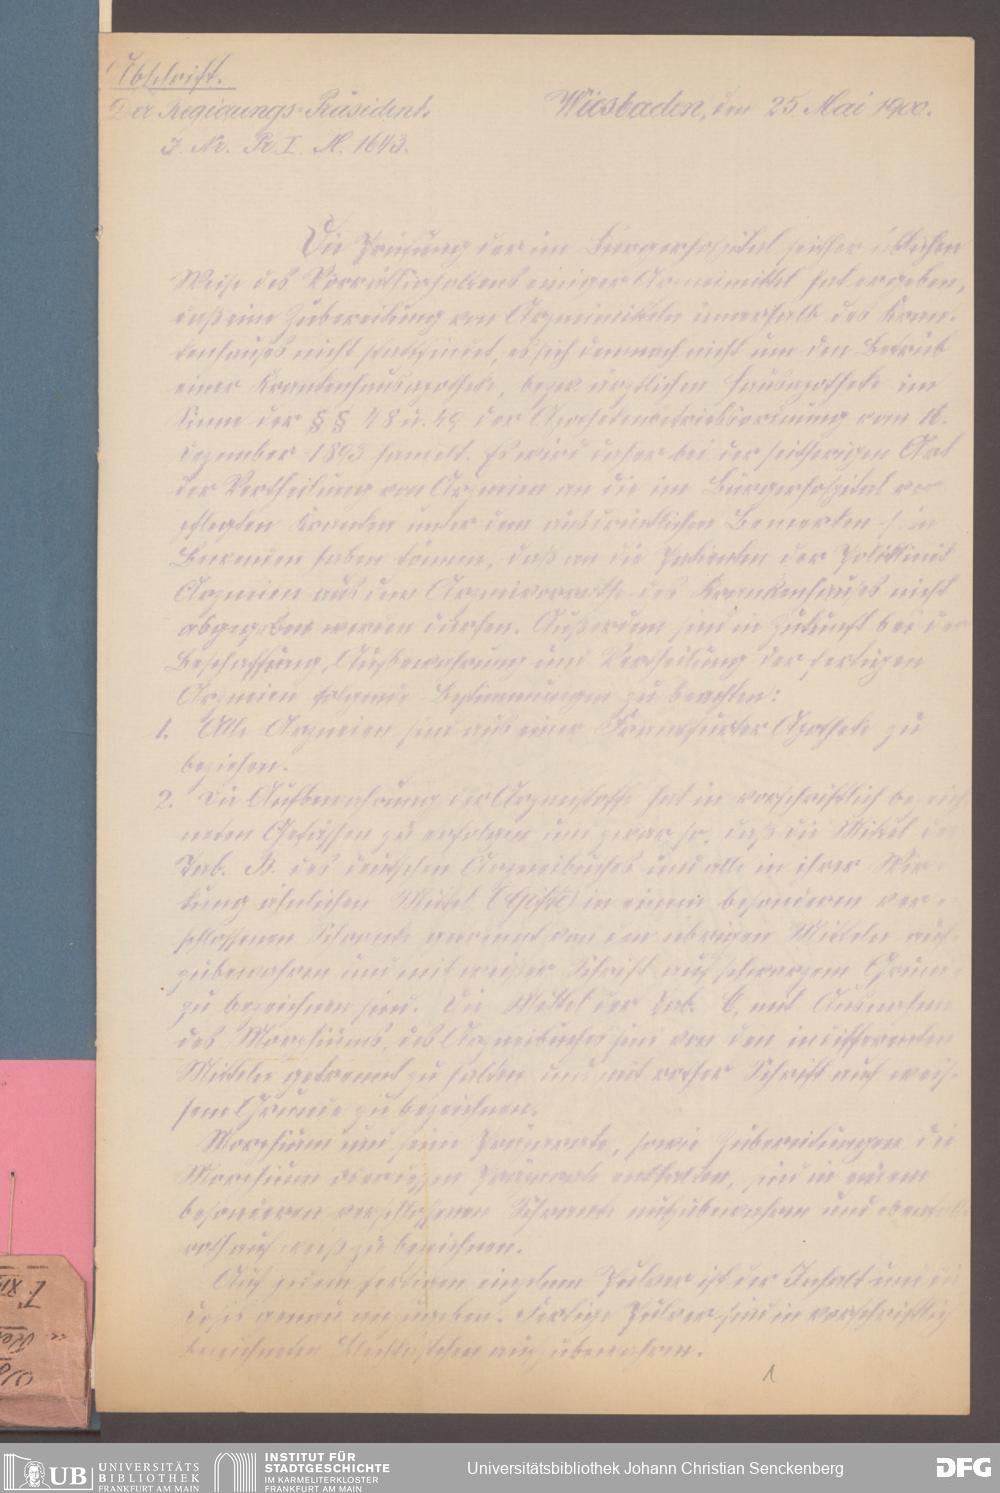 Abschrift.
Der Regierungs-Präsident. Wiesbaden, den 25 Mai 1900.
J. Nr. Pr. I. M. 1643.
Die Prüfung der im Bürgerhospital seither üblichen
Weise des Vorräthighaltens einiger Arzneimittel hat ergeben,
daß eine Zubereitung von Arzneimitteln innerhalb des Kran-
kenhauses nicht stattfindet, es sich demnach nicht um den Betrieb
einer Krankenhausapotheke, bezw. ärztlichen Hausapotheke im
Sinne der §§ 48 u. 49 der Apothekenbetriebsordnung vom 16.
Dezember 1893 handelt. Es wird daher bei der seitherigen Art
der Vertheilung von Arzneien an die im Bürgerhospital ver-
pflegten Kranken unter dem ausdrücklichen Bemerken sein
Bewenden haben können, daß an die Patienten der Poliklinik
Arzneien aus dem Arzneivorrathe des Krankenhauses nicht
abgegeben werden dürfen. Außerdem sind in Zukunft bei der
Beschaffung, Aufbewahrung und Vertheilung der fertigen
Arzneien folgende Bestimmungen zu beachten:
1. Alle Arzneien sind aus einer Frankfurter Apotheke zu
beziehen.
2. Die Aufbewahrung der Arzneistoffe hat in vorschriftlich bezeich-
neten Gefässen zu erfolgen und zwar so, daß die Mittel der
Tab. B. des deutschen Arzneibuches und alle in ihrer Wir-
kung ähnlichen Mittel (Gifte) in einem besonderen ver-
schlossenen Schranke getrennt von den übrigen Mitteln auf-
zubewahren und mit weißer Schrift auf schwarzem Grunde
zu bezeichnen sind. Die Mittel der Tab. C, mit Ausnahme
des Morphiums, des Arzneibuches sind von den indifferenten
Mitteln getrennt zu halten und mit rother Schrift auf weis-
sem Grunde zu bezeichnen.
Morphium und seine Präparate, sowie Zubereitungen die
Morphium oder dessen Präparate enthalten, sind in einem
besonderen verschlossenen Schranke aufzubewahren und ebenfalls
roth auf weiß zu bezeichnen.
Auf jedem fertigen einzelnen Pulver ist der Inhalt und die
Dosis genau anzugeben. Fertige Pulver sind in vorschriftlich
bezeichneten aufzubewahren.
1
UB UNIVERSITÄTS
BIBLIOTHEK
FRANKFURT AM MAIN
INSTITUT FÜR
STADTGESCHICHTE
IM KARMELITERKLOSTER
FRANKFURT AM MAIN
Universitätsbibliothek Johann Christian Senckenberg
DFG